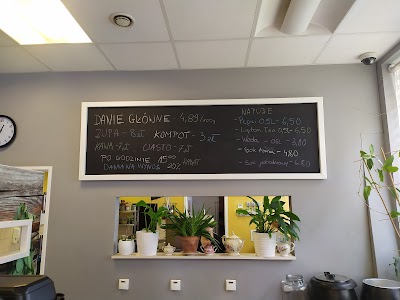 DANIE GŁÓWNE - 4,89/100g
ZUPA - 8zł KOMPOT - 3zł
KAWA - 7zł CIASTO - 7zł
PO GODZINIE 15⁰⁰
DANIA NA WYNOS 20% RABAT
NAPOJE
- Pepsi 0,5L - 6,50
- Lipton Tea 0,5L - 6,50
- Woda
- Sok - 4,80
- Sok - 4,80